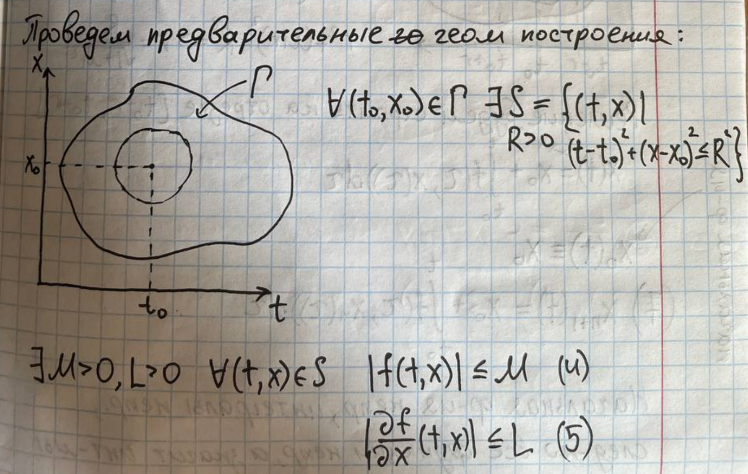 Проведем предварительные геом построения:
x
Γ
∀(t₀,x₀)∈Γ ∃S={(t,x)|
R>0 (t-t₀)²+(x-x₀)²≤R²}
x₀
t₀ t
∃M>0, L>0 ∀(t,x)∈S |f(t,x)|≤M (4)
|∂f/∂x (t,x)|≤L (5)